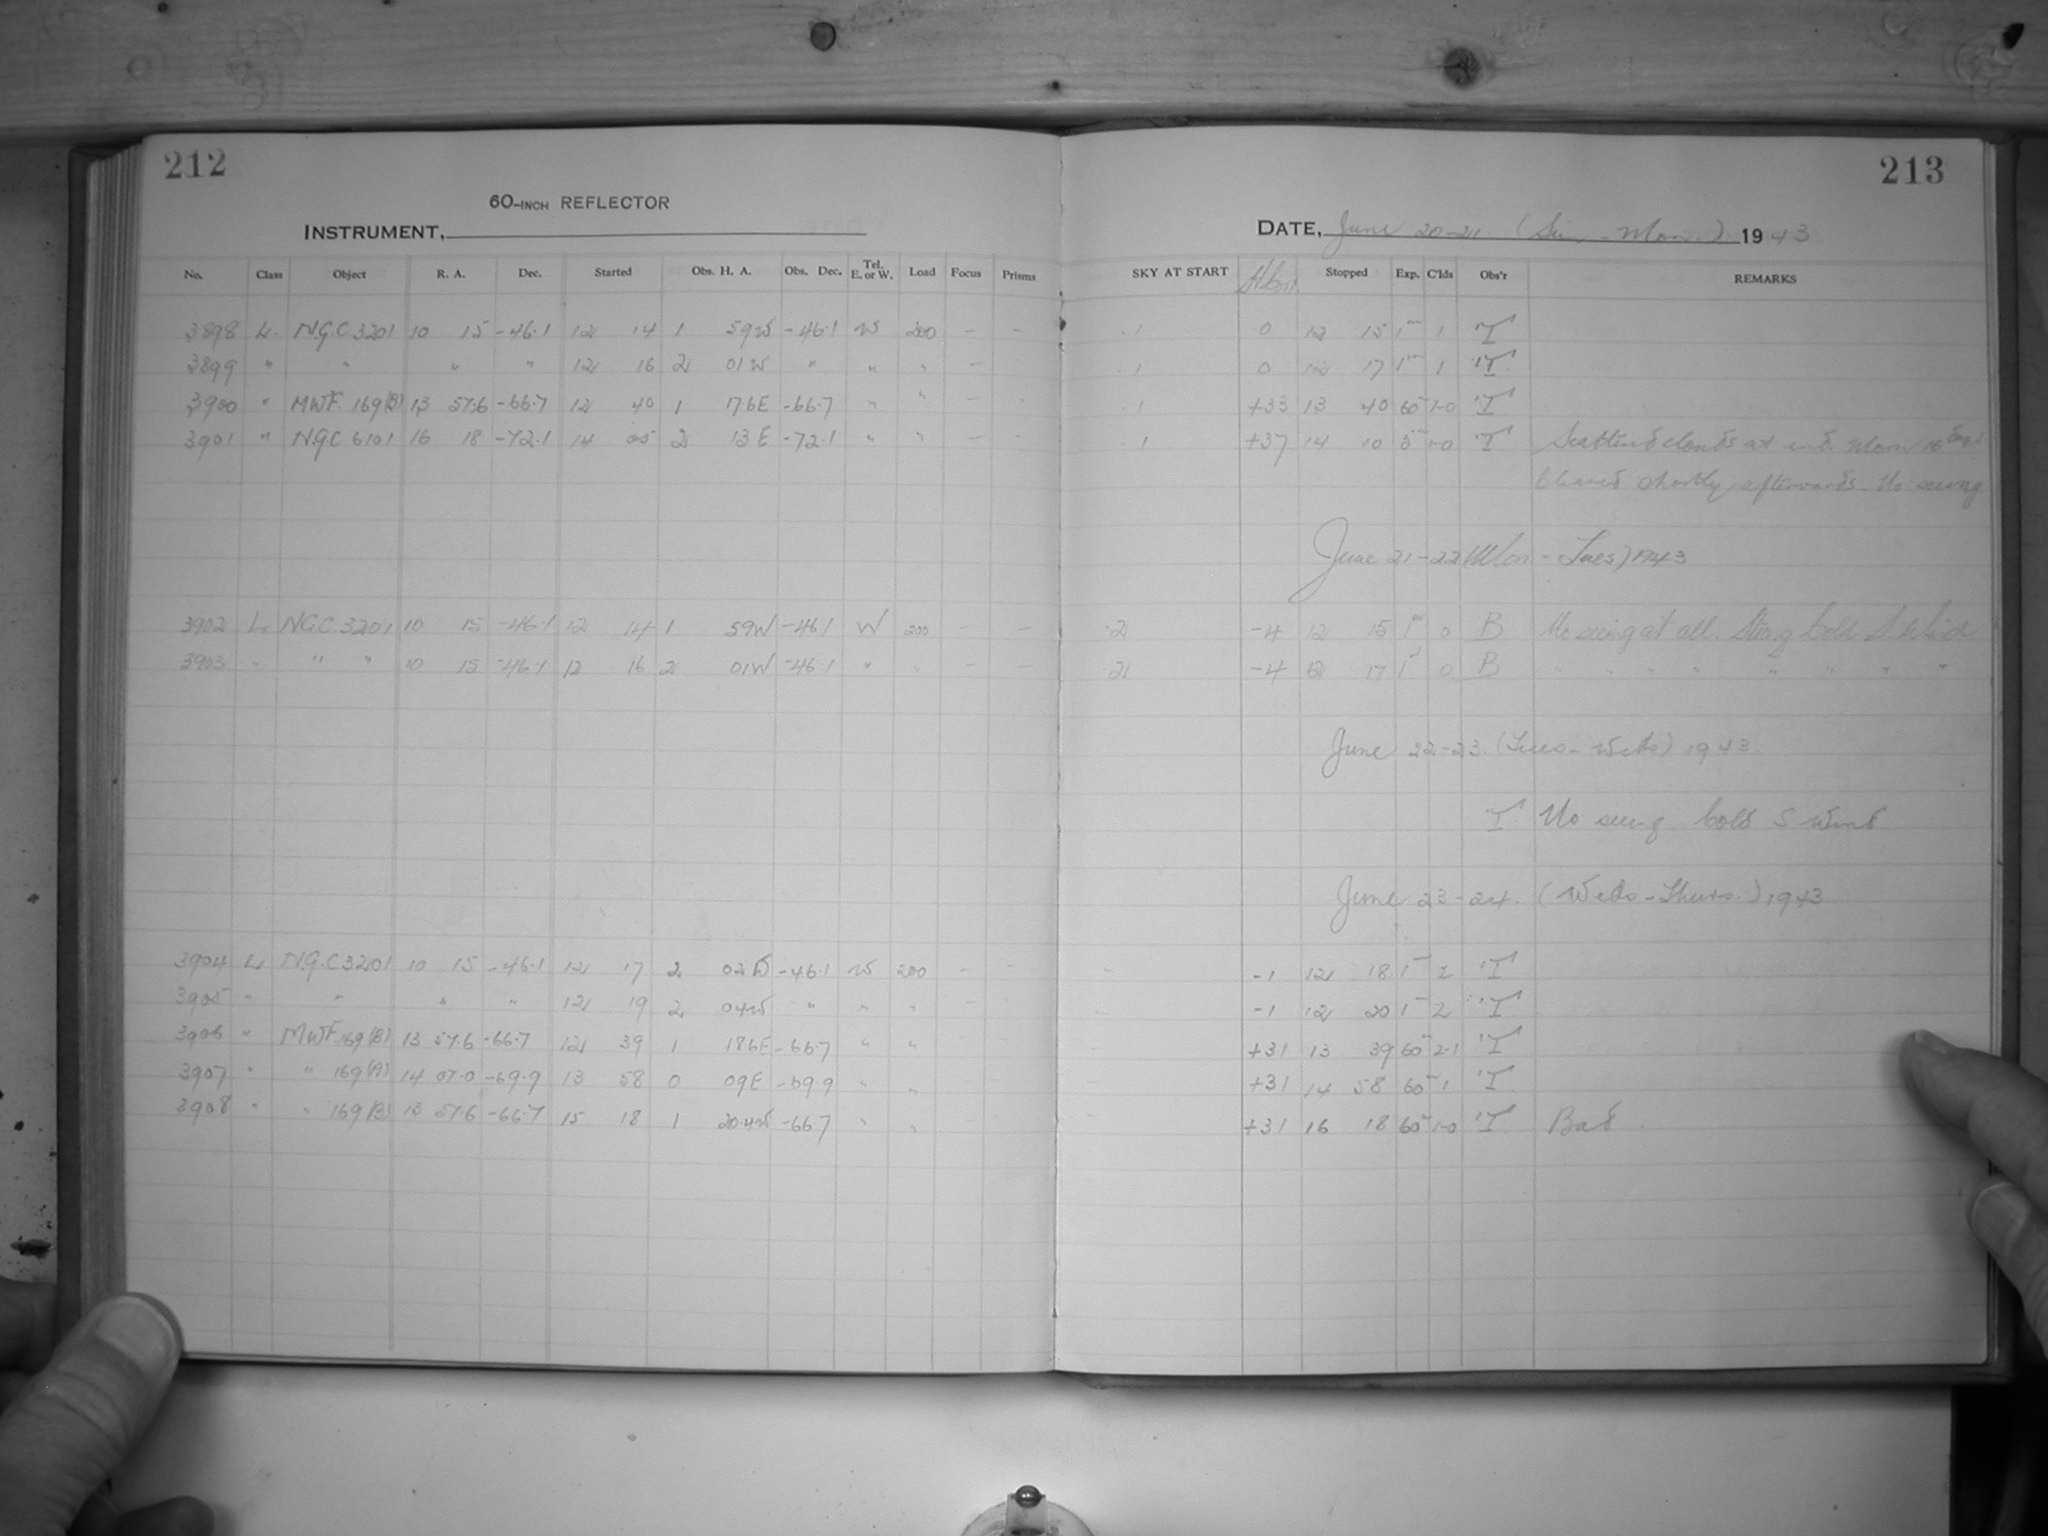 212
213
60-INCH REFLECTOR
INSTRUMENT,
DATE, June 20-21 (Sun - Mon.) 1943
No. Class Object R. A. Dec. Started Obs. H. A. Obs. Dec. Tel. E. or W. Load Focus Prisms SKY AT START Stopped Exp. C'lds Obs'r REMARKS
3898 L. N.G.C. 3201 10 15 -46.1 12 14 1 59W -46.1 W 200 - - .1 0 12 15 1m 1 T
3899 " " " " 12 16 2 01W " " " - .1 0 12 17 1m 1 T
3900 " MWF. 169(B) 13 57.6 -66.7 12 40 1 17.6E -66.7 " " - - .1 +33 13 40 60m 1-0 T
3901 " NGC 6101 16 18 -72.1 14 05 2 13E -72.1 " " - - .1 +37 14 10 5m 1-0 T Scattered clouds at end. Moon
Cleared shortly afterwards. No seeing
June 21-22 (Mon - Tues) 1943
3902 L NGC 3201 10 15 -46.1 12 14 1 59W -46.1 W 200 - .2 -4 12 15 1m 0 B No seeing at all. Strong Cold S. Wind
3903 " " " 10 15 -46.1 12 16 2 01W -46.1 " " - - .2 -4 12 17 1m 0 B " " " " " " " "
June 22-23. (Tues - Weds) 1943.
T. No seeing Cold S wind
June 23-24. (Weds - Thurs.) 1943
3904 L N.G.C 3201 10 15 -46.1 12 17 2 02W -46.1 W 200 - - - -1 12 18 1m 2 T
3905 " " " " 12 19 2 04W " " " - - -1 12 20 1m 2 T
3906 " MWF. 169(B) 13 57.6 -66.7 12 39 1 18.6E -66.7 " " - - +31 13 39 60m 2-1 T
3907 " " 169(A) 14 07.0 -69.9 13 58 0 09E -69.9 " " - - +31 14 58 60m 1 T
3908 " " 169(B) 13 57.6 -66.7 15 18 1 20.4W -66.7 " " - +31 16 18 60m 1-0 T Bad.